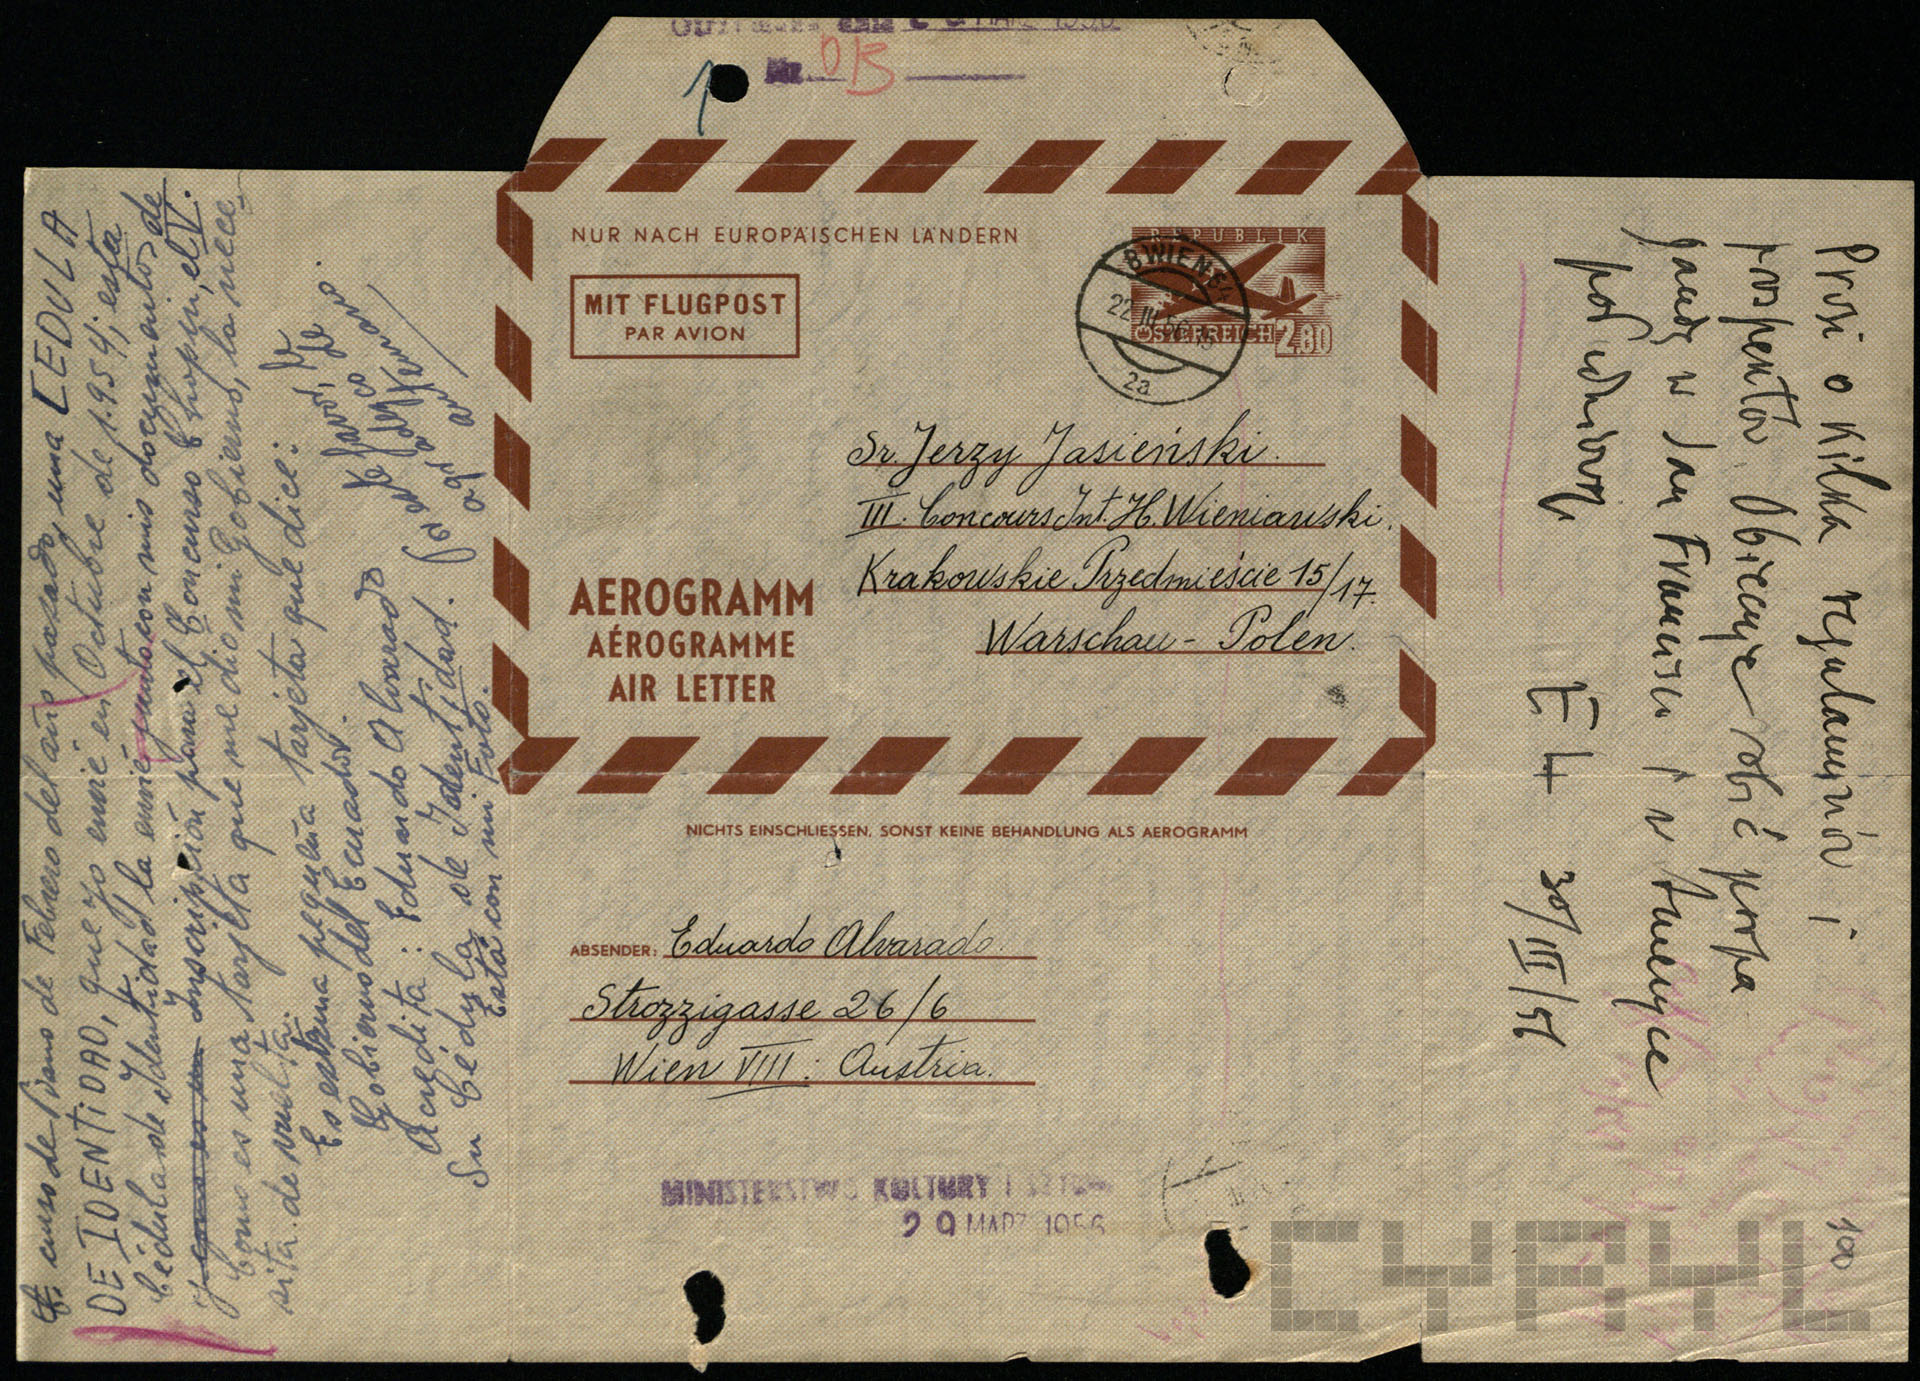 29 MARZ 1956
Nr. 013
1
NUR NACH EUROPÄISCHEN LÄNDERN
MIT FLUGPOST
PAR AVION
REPUBLIK
ÖSTERREICH 2.80
WIEN 64
22.III.56
2a
Sr. Jerzy Jasieński.
III. Concours Int. H. Wieniawski.
Krakowskie Przedmieście 15/17.
Warschau - Polen.
AEROGRAMM
AÉROGRAMME
AIR LETTER
NICHTS EINSCHLIESSEN, SONST KEINE BEHANDLUNG ALS AEROGRAMM
ABSENDER: Eduardo Alvarado.
Strozzigasse 26/6
Wien VIII: Austria.
MINISTERSTWO KULTURY I SZTUKI
29 MARZ 1956
curso de Piano de Febrero del año pasado, una CEDULA
DE IDENTIDAD, que yo envié en Octubre de 1.954; esta
Cédula de Identidad la envié junto con mis documentos de
Inscripción para el Concurso Chopin, el V.
Como es una tarjeta que me dió mi Gobierno, la nece-
sito de vuelta.
Es esta una pequeña tarjeta que dice:
Gobierno del Ecuador.
Acredita: Eduardo Alvarado
Su Cédula de Identidad.
Está con mi Foto.
favor, de
Prosi o kilka regulaminów i
prospektów. Obiecuje robić propa
gandę w San Francisco i w Ameryce
południowej
E4 30/III/56
100
CYRYL